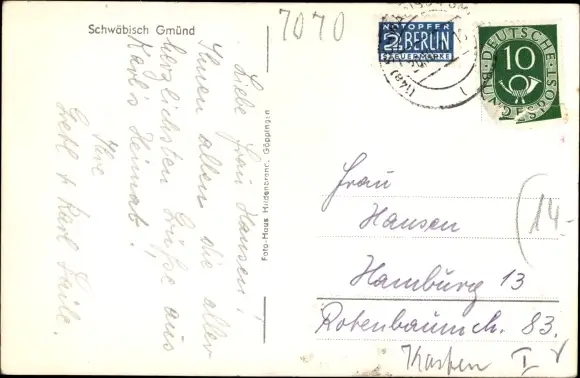 Schwäbisch Gmünd
7070
Liebe Frau Hansen!
Ihnen allen die aller
herzlichsten Grüße aus
Karl's Heimat!
Ihre
Gretl + Karl
Foto-Haus Hildenbrand, Göppingen
NOTOPFER
2 BERLIN
STEUERMARKE
DEUTSCHE BUNDESPOST
10
(14a)
Frau
Hansen
Hamburg 13
Rotenbaumch. 83.
Kasten I
(14-